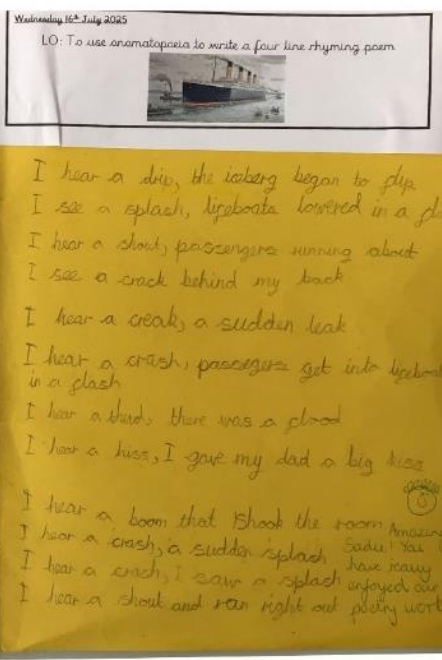 Wednesday 16th July 2025
LO: To use onomatopoeia to write a four line rhyming poem
I hear a drip, the iceberg began to dip
I see a splash, lifeboats lowered in a
I hear a shout, passengers running about
I see a crack behind my back
I hear a creak, a sudden leak
I hear a crash, passegers get into lifeboat
in a flash
I hear a thud, there was a flood
I hear a hiss, I gave my dad a big kiss
I hear a boom that shook the room
I hear a crash, a sudden splash
I hear a crach, I saw a splash
I hear a shout and ran right out
Amazing
Sadie! You
have really
enjoyed our
poetry work